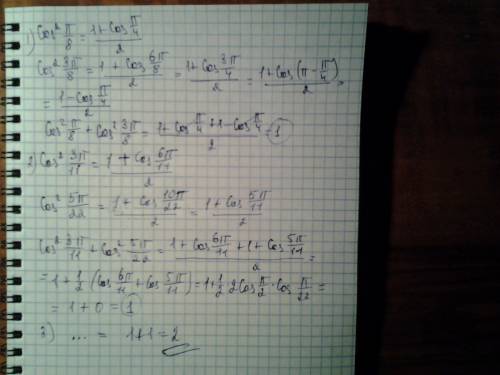 1) Cos² π/8 = (1 + Cos π/4)/2
Cos² 3π/8 = (1 + Cos 6π/8)/2 = (1 + Cos 3π/4)/2 = (1 + Cos(π - π/4))/2 =
= (1 - Cos π/4)/2
Cos² π/8 + Cos² 3π/8 = (1 + Cos π/4 + 1 - Cos π/4)/2 = 1
2) Cos² 3π/11 = (1 + Cos 6π/11)/2
Cos² 5π/22 = (1 + Cos 10π/22)/2 = (1 + Cos 5π/11)/2
Cos² 3π/11 + Cos² 5π/22 = (1 + Cos 6π/11 + 1 + Cos 5π/11)/2 =
= 1 + 1/2 (Cos 6π/11 + Cos 5π/11) = 1 + 1/2 · 2Cos π/2 · Cos π/22 =
= 1 + 0 = 1
3) ... = 1+1=2